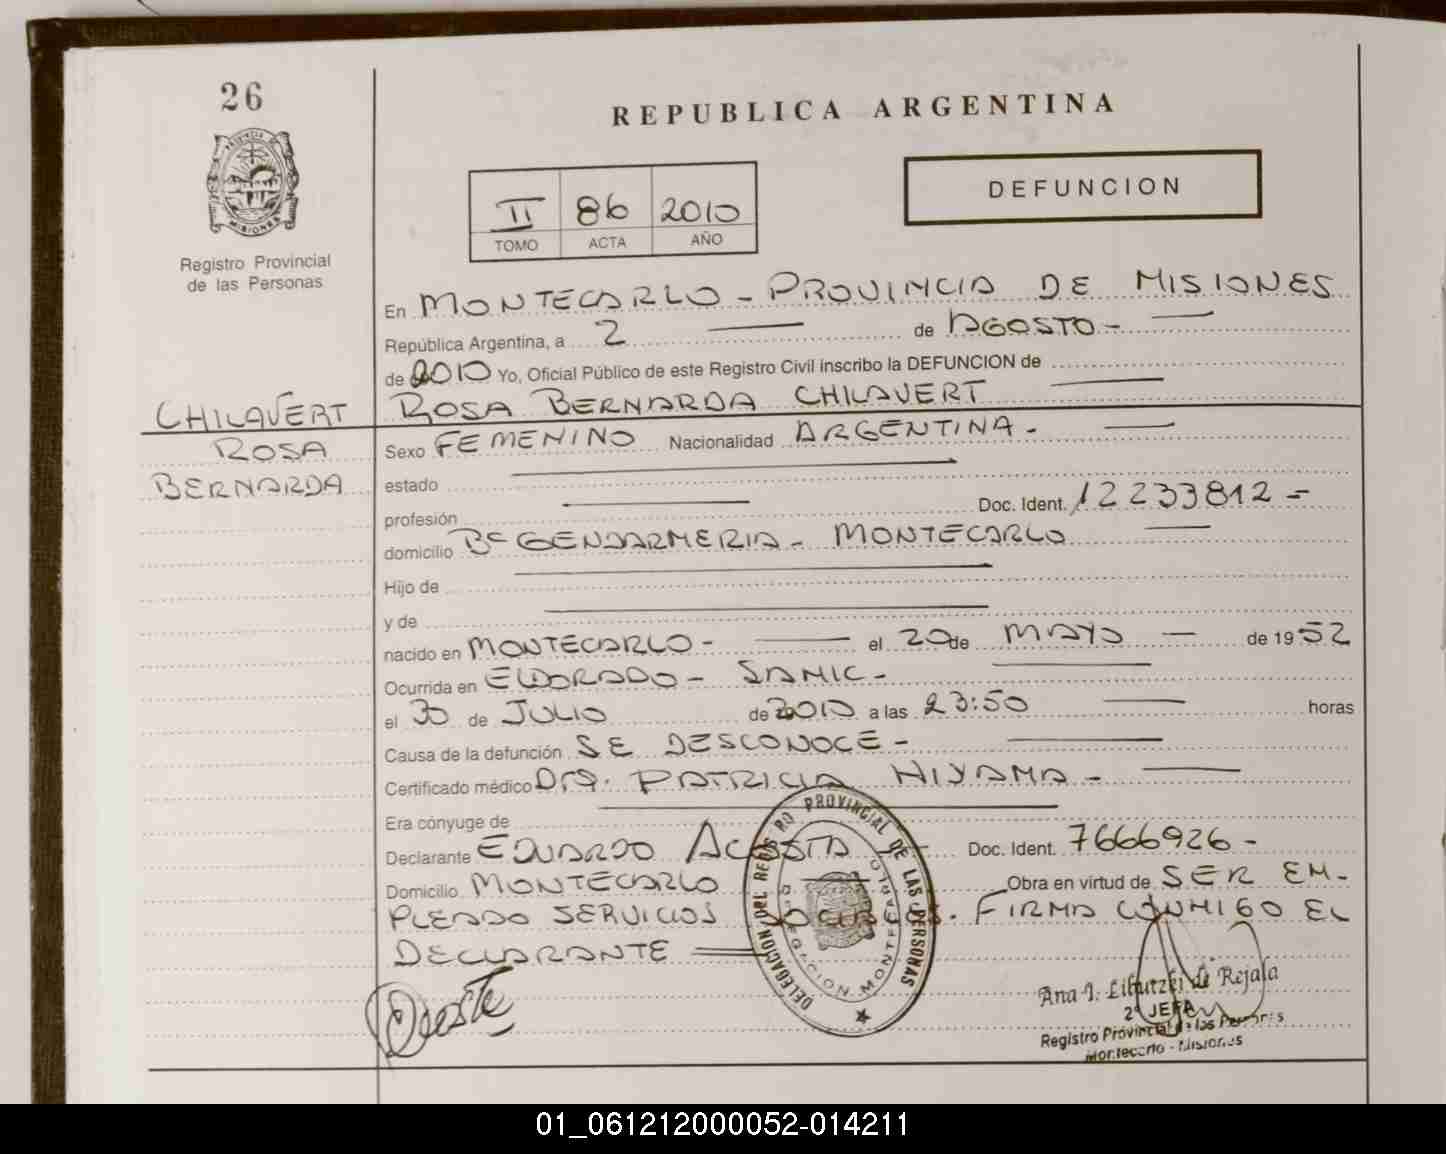 26
PROVINCIA DE MISIONES
Registro Provincial
de las Personas
REPUBLICA ARGENTINA
DEFUNCION
II 86 2010
TOMO ACTA AÑO
En MONTECARLO - PROVINCIA DE MISIONES
República Argentina, a 2 de AGOSTO -
de 2010 Yo, Oficial Público de este Registro Civil inscribo la DEFUNCION de
CHILAVERT ROSA BERNARDA CHILAVERT
ROSA
BERNARDA
Sexo FEMENINO Nacionalidad ARGENTINA -
estado
profesión Doc. Ident. 12233812 -
domicilio Bº GENDARMERIA - MONTECARLO
Hijo de
y de
nacido en MONTECARLO - el 20 de MAYO - de 1952
Ocurrida en ELDORADO - SAMIC -
el 30 de JULIO de 2010 a las 23:50 horas
Causa de la defunción SE DESCONOCE -
Certificado médico Dra. PATRICIA HIYAMA -
Era cónyuge de
Declarante EDUARDO ACOSTA - Doc. Ident. 7666926 -
Domicilio MONTECARLO Obra en virtud de SER EM-
PLEADO SERVICIOS SOCIALES. FIRMA CONMIGO EL
DECLARANTE
DELEGACION DEL REGISTRO PROVINCIAL DE LAS PERSONAS
DELEGACION MONTECARLO
Ana I. de Rejala
2ª JEFA
Registro Provincial de las Personas
Montecarlo - Misiones
01_061212000052-014211